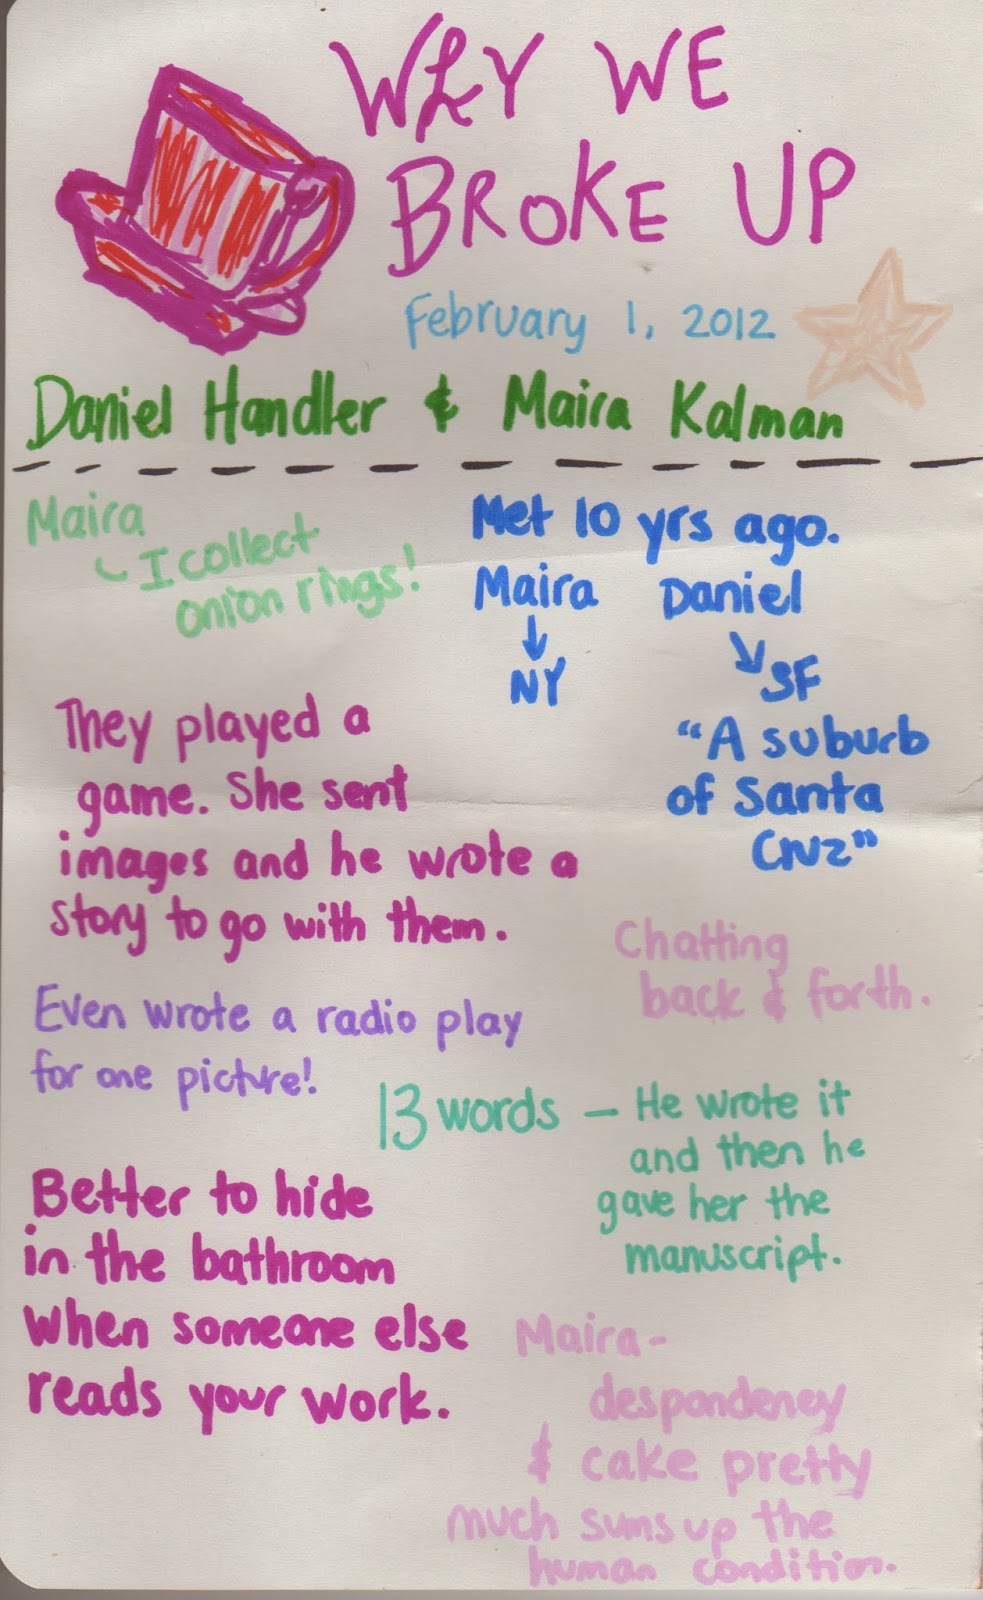 WhY WE
BROKE UP
February 1, 2012
Daniel Handler & Maira Kalman
Maira
I collect
onion rings!
Met 10 yrs ago.
Maira Daniel
NY
SF
"A suburb
of Santa
Cruz"
They played a
game. She sent
images and he wrote a
story to go with them.
Chatting
back & forth.
Even wrote a radio play
for one picture!
13 words – He wrote it
and then he
gave her the
manuscript.
Better to hide
in the bathroom
when someone else
reads your work.
Maira-
despondency
& cake pretty
much sums up the
human condition.